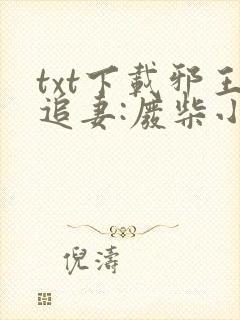 txt下載邪王
追妻:廢柴小
倪濤